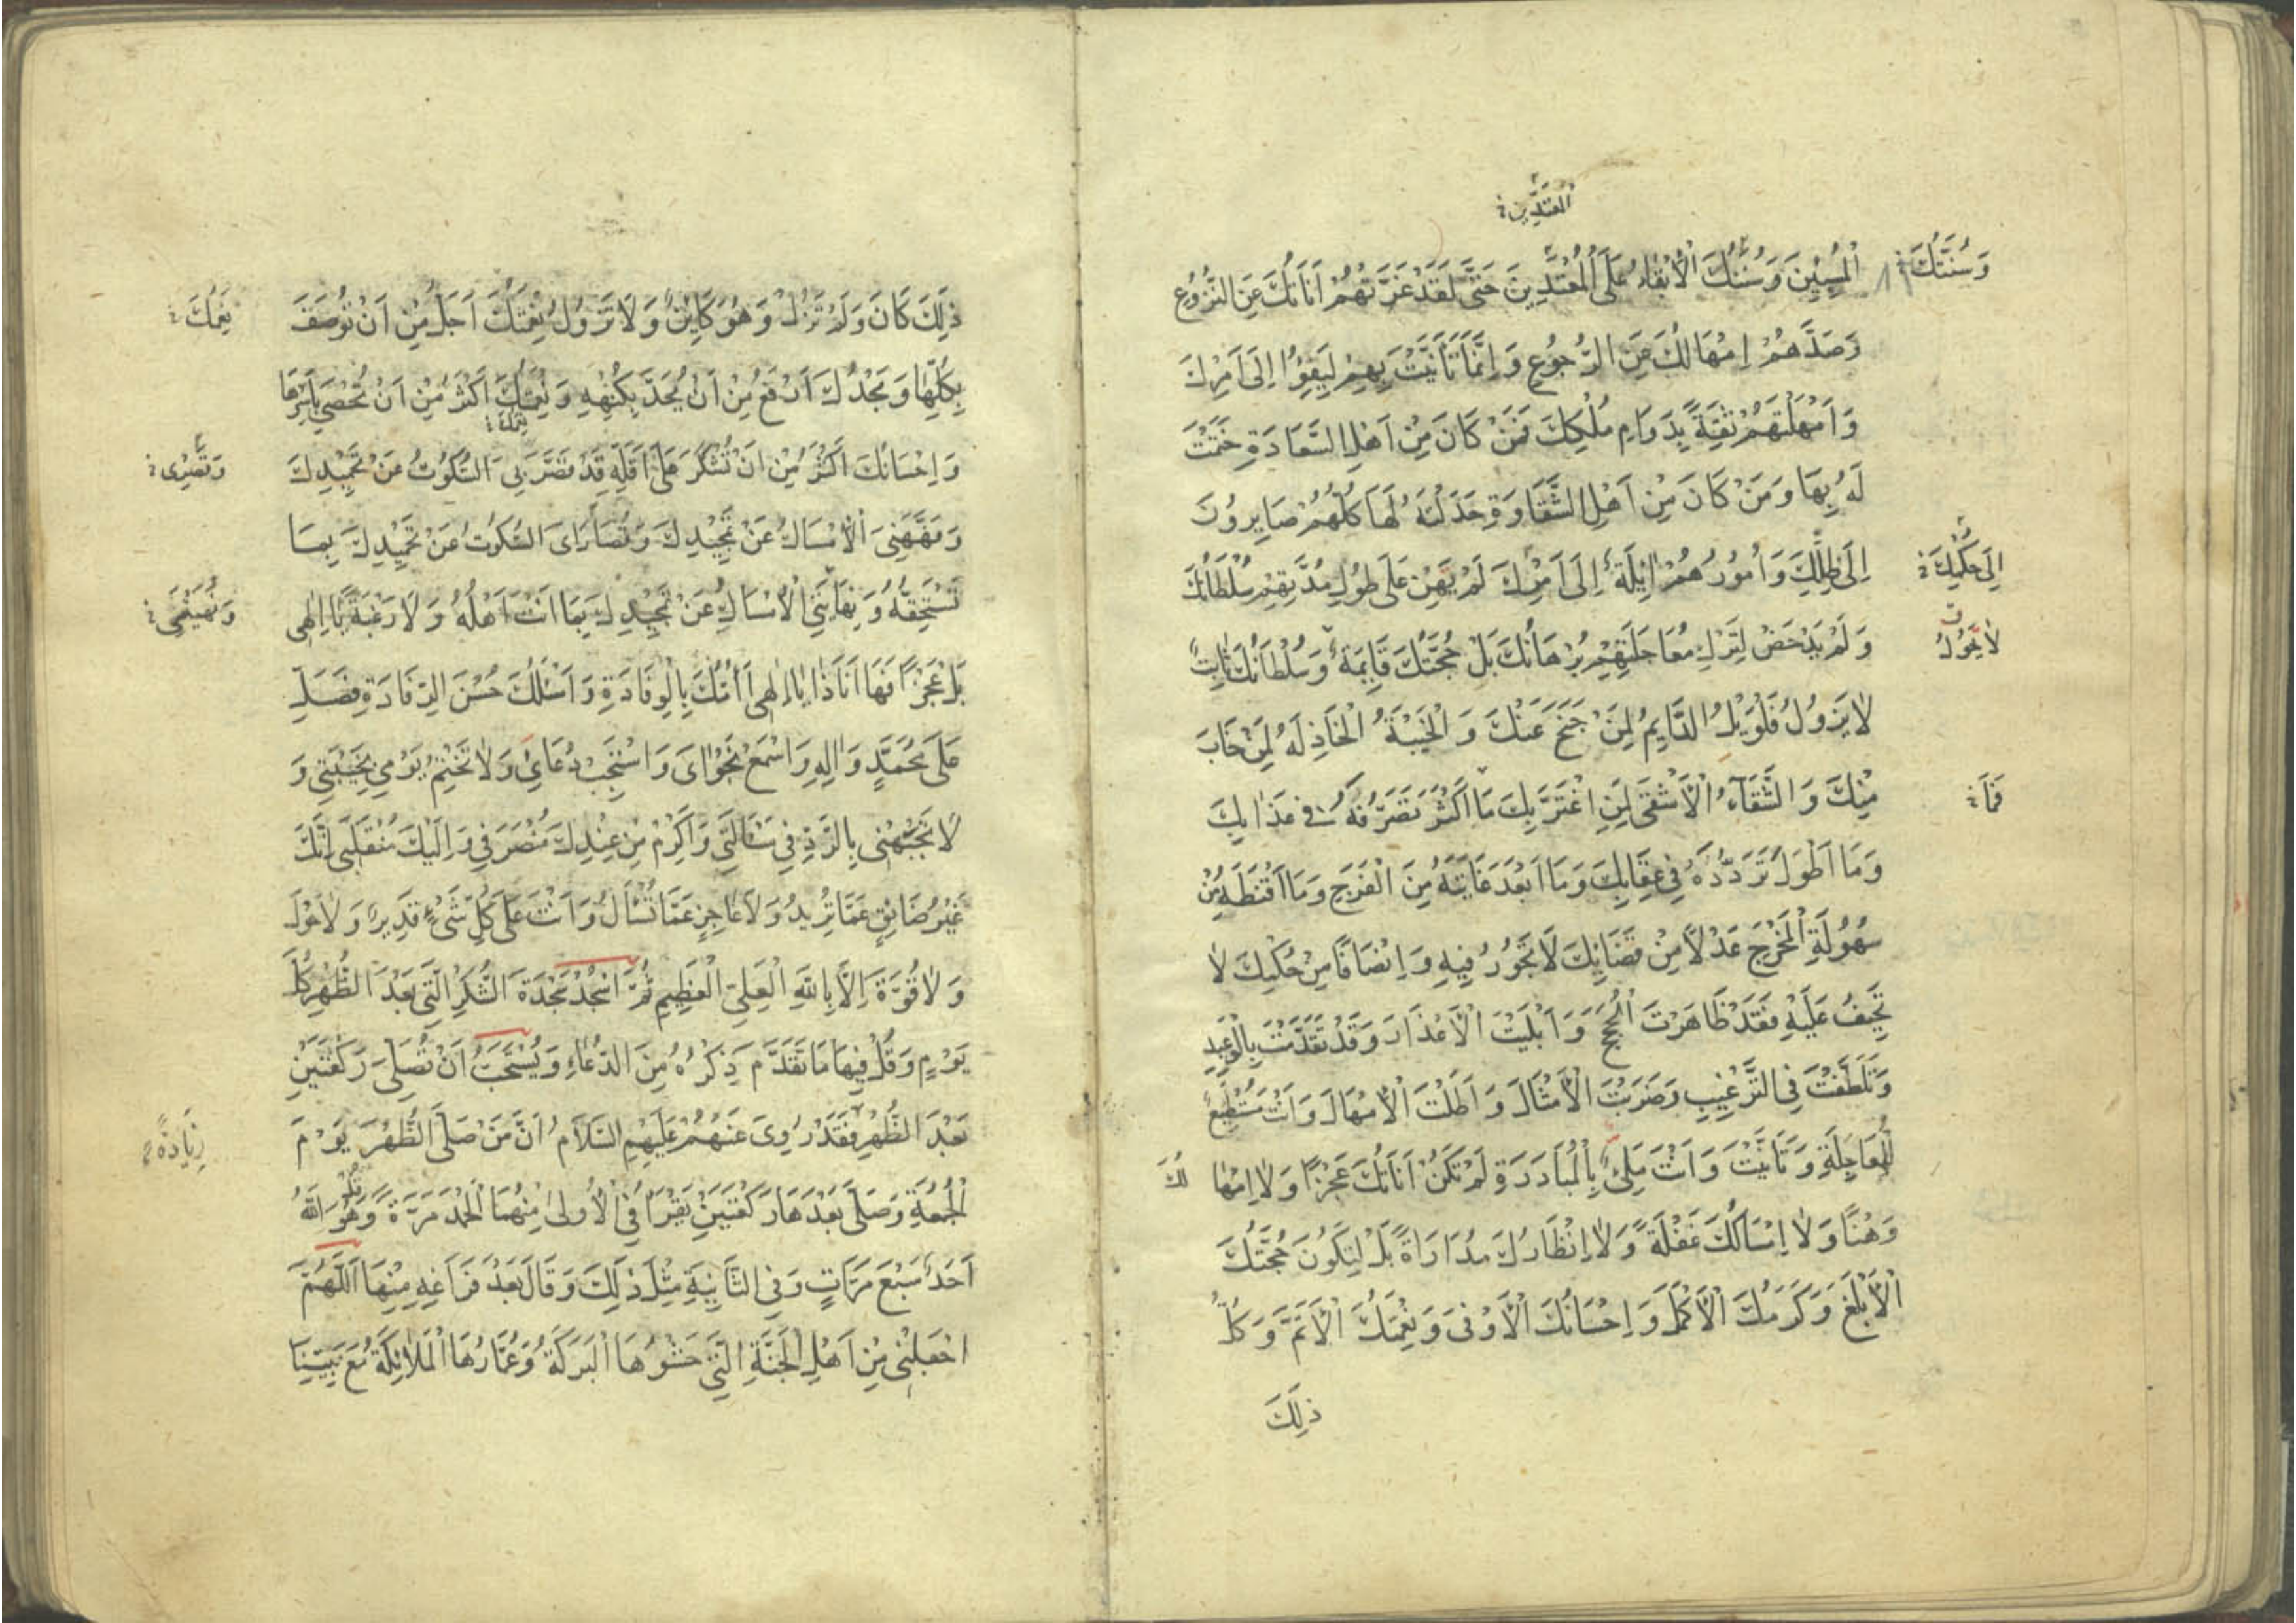 المعتدين
وَسُنَّتُكَ
الْمُسِيئِينَ وَسُنَنُكَ الْاِبْقَاءُ عَلَى الْمُعْتَدِينَ حَتَّى لَقَدْ غَرَّتْهُمْ اَنَاتُكَ عَنِ النُّزُوعِ
وَصَدَّهُمْ اِمْهَالُكَ عَنِ الرُّجُوعِ وَاِنَّمَا تَاَنَّيْتَ بِهِمْ لِيَفِيئُوا اِلَى اَمْرِكَ
وَاَمْهَلْتَهُمْ ثِقَةً بِدَوَامِ مُلْكِكَ فَمَنْ كَانَ مِنْ اَهْلِ السَّعَادَةِ خَتَمْتَ
لَهُ بِهَا وَمَنْ كَانَ مِنْ اَهْلِ الشَّقَاوَةِ خَذَلْتَهُ لَهَا كُلُّهُمْ صَايِرُونَ
اِلَى ظِلِّكَ وَاُمُورُهُمْ اٰئِلَةٌ اِلَى اَمْرِكَ لَمْ يَهِنْ عَلَى طُولِ مُدَّتِهِمْ سُلْطَانُكَ
اِلَى حُكْمِكَ
وَلَمْ يَدْحَضْ لِتَرْكِ مُعَاجَلَتِهِمْ بُرْهَانُكَ بَلْ حُجَّتُكَ قَايِمَةٌ وَسُلْطَانُكَ ثَابِتٌ
لَا يَحُولُ
لَا يَزُولُ فَلْوَيْلُ الدَّايِمُ لِمَنْ جَنَحَ عَنْكَ وَالْخَيْبَةُ الْخَاذِلَةُ لِمَنْ خَابَ
مِنْكَ وَالشَّقَآءُ الْاَشْقَى لِمَنِ اغْتَرَّ بِكَ مَا اَكْثَرَ تَصَرُّفَهُ فِي عَذَابِكَ
فَمَا
وَمَا اَطْوَلَ تَرَدُّدَهُ فِي عِقَابِكَ وَمَا اَبْعَدَ غَايَتَهُ مِنَ الْفَرَجِ وَمَا اَقْنَطَهُ مِنْ
سُهُولَةِ الْمَخْرَجِ عَدْلًا مِنْ قَضَائِكَ لَا تَجُورُ فِيهِ وَاِنْصَافًا مِنْ حُكْمِكَ لَا
تَحِيفُ عَلَيْهِ فَقَدْ ظَاهَرْتَ الْحُجَجَ وَاَبْلَيْتَ الْاَعْذَارَ وَقَدْ تَقَدَّمْتَ بِالْوَعِيدِ
وَتَلَطَّفْتَ فِي التَّرْغِيبِ وَضَرَبْتَ الْاَمْثَالَ وَاَطَلْتَ الْاِمْهَالَ وَاَنْتَ مُسْتَطِيعٌ
لِلْمُعَاجَلَةِ وَتَاَنَّيْتَ وَاَنْتَ مَلِئٌ بِالْمُبَادَرَةِ لَمْ تَكُنْ اَنَاتُكَ عَجْزًا وَلَا اِمْهَا
لُكَ
وَهْنًا وَلَا اِمْسَاكُكَ غَفْلَةً وَلَا اِنْظَارُكَ مُدَارَاةً بَلْ لِتَكُونَ حُجَّتُكَ
الْاَبْلَغَ وَكَرَمُكَ الْاَكْمَلَ وَاِحْسَانُكَ الْاَوْفَى وَنِعْمَتُكَ الْاَتَمَّ وَكُلُّ
ذٰلِكَ
ذٰلِكَ كَانَ وَلَمْ تَزَلْ وَهُوَ كَايِنٌ وَلَا تَزُولُ نِعْمَتُكَ اَجَلُّ مِنْ اَنْ تُوصَفَ
نِعَمُكَ
بِكُلِّهَا وَمَجْدُكَ اَرْفَعُ مِنْ اَنْ يُحَدَّ بِكُنْهِهِ وَنِعْمَتُكَ اَكْثَرُ مِنْ اَنْ تُحْصَى بِاَسْرِهَا
نِعَمُكَ
وَاِحْسَانُكَ اَكْثَرُ مِنْ اَنْ تُشْكَرَ عَلَى اَقَلِّهِ قَدْ قَصَّرَ بِيَ السُّكُوتُ عَنْ تَحْمِيدِكَ
وَفَهَّهَنِيَ الْاِمْسَاكُ عَنْ تَمْجِيدِكَ وَقُصَارَاىَ السُّكُوتُ عَنْ تَحْمِيدِكَ بِمَا
تَسْتَحِقُّهُ وَنِهَايَتِي الْاِمْسَاكُ عَنْ تَمْجِيدِكَ بِمَا اَنْتَ اَهْلُهُ وَلَا رَغْبَةً يَا اِلٰهِي
بَلْ عَجْزًا فَهَا اَنَا ذَا يَا اِلٰهِي اَؤُمُّكَ بِالْوِفَادَةِ وَاَسْئَلُكَ حُسْنَ الرِّفَادَةِ فَصَلِّ
عَلَى مُحَمَّدٍ وَاٰلِهِ وَاسْمَعْ نَجْوَاىَ وَاسْتَجِبْ دُعَائِي وَلَا تَخْتِمْ يَوْمِي بِخَيْبَتِي وَ
لَا تَجْبَهْنِي بِالرَّدِّ فِي مَسْأَلَتِي وَاَكْرِمْ مِنْ عِنْدِكَ مُنْصَرَفِي وَاِلَيْكَ مُنْقَلَبِي اِنَّكَ
غَيْرُ ضَائِقٍ عَمَّا تُرِيدُ وَلَا عَاجِزٍ عَمَّا تُسْأَلُ وَاَنْتَ عَلَى كُلِّ شَىْءٍ قَدِيرٌ وَلَا حَوْلَ
وَلَا قُوَّةَ اِلَّا بِاللّٰهِ الْعَلِيِّ الْعَظِيمِ ثُمَّ اسْجُدْ سَجْدَةَ الشُّكْرِ الَّتِي بَعْدَ الظُّهْرِ كُلَّ
يَوْمٍ وَقُلْ فِيهَا مَا تَقَدَّمَ ذِكْرُهُ مِنَ الدُّعَاءِ وَيُسْتَحَبُّ اَنْ تُصَلِّيَ رَكْعَتَيْنِ
بَعْدَ الظُّهْرِ فَقَدْ رُوِىَ عَنْهُمْ عَلَيْهِمُ السَّلَامُ اَنَّ مَنْ صَلَّى الظُّهْرَ يَوْمَ
زِيَادَة
الْجُمُعَةِ وَصَلَّى بَعْدَهَا رَكْعَتَيْنِ يَقْرَأُ فِي الْاُولٰى مِنْهُمَا الْحَمْدَ مَرَّةً وَقُلْ هُوَ اللّٰهُ
اَحَدٌ سَبْعَ مَرَّاتٍ وَفِي الثَّانِيَةِ مِثْلَ ذٰلِكَ وَقَالَ بَعْدَ فَرَاغِهِ مِنْهَا اَللّٰهُمَّ
اجْعَلْنِي مِنْ اَهْلِ الْجَنَّةِ الَّتِي حَشْوُهَا الْبَرَكَةُ وَعُمَّارُهَا الْمَلَائِكَةُ مَعَ نَبِيِّنَا